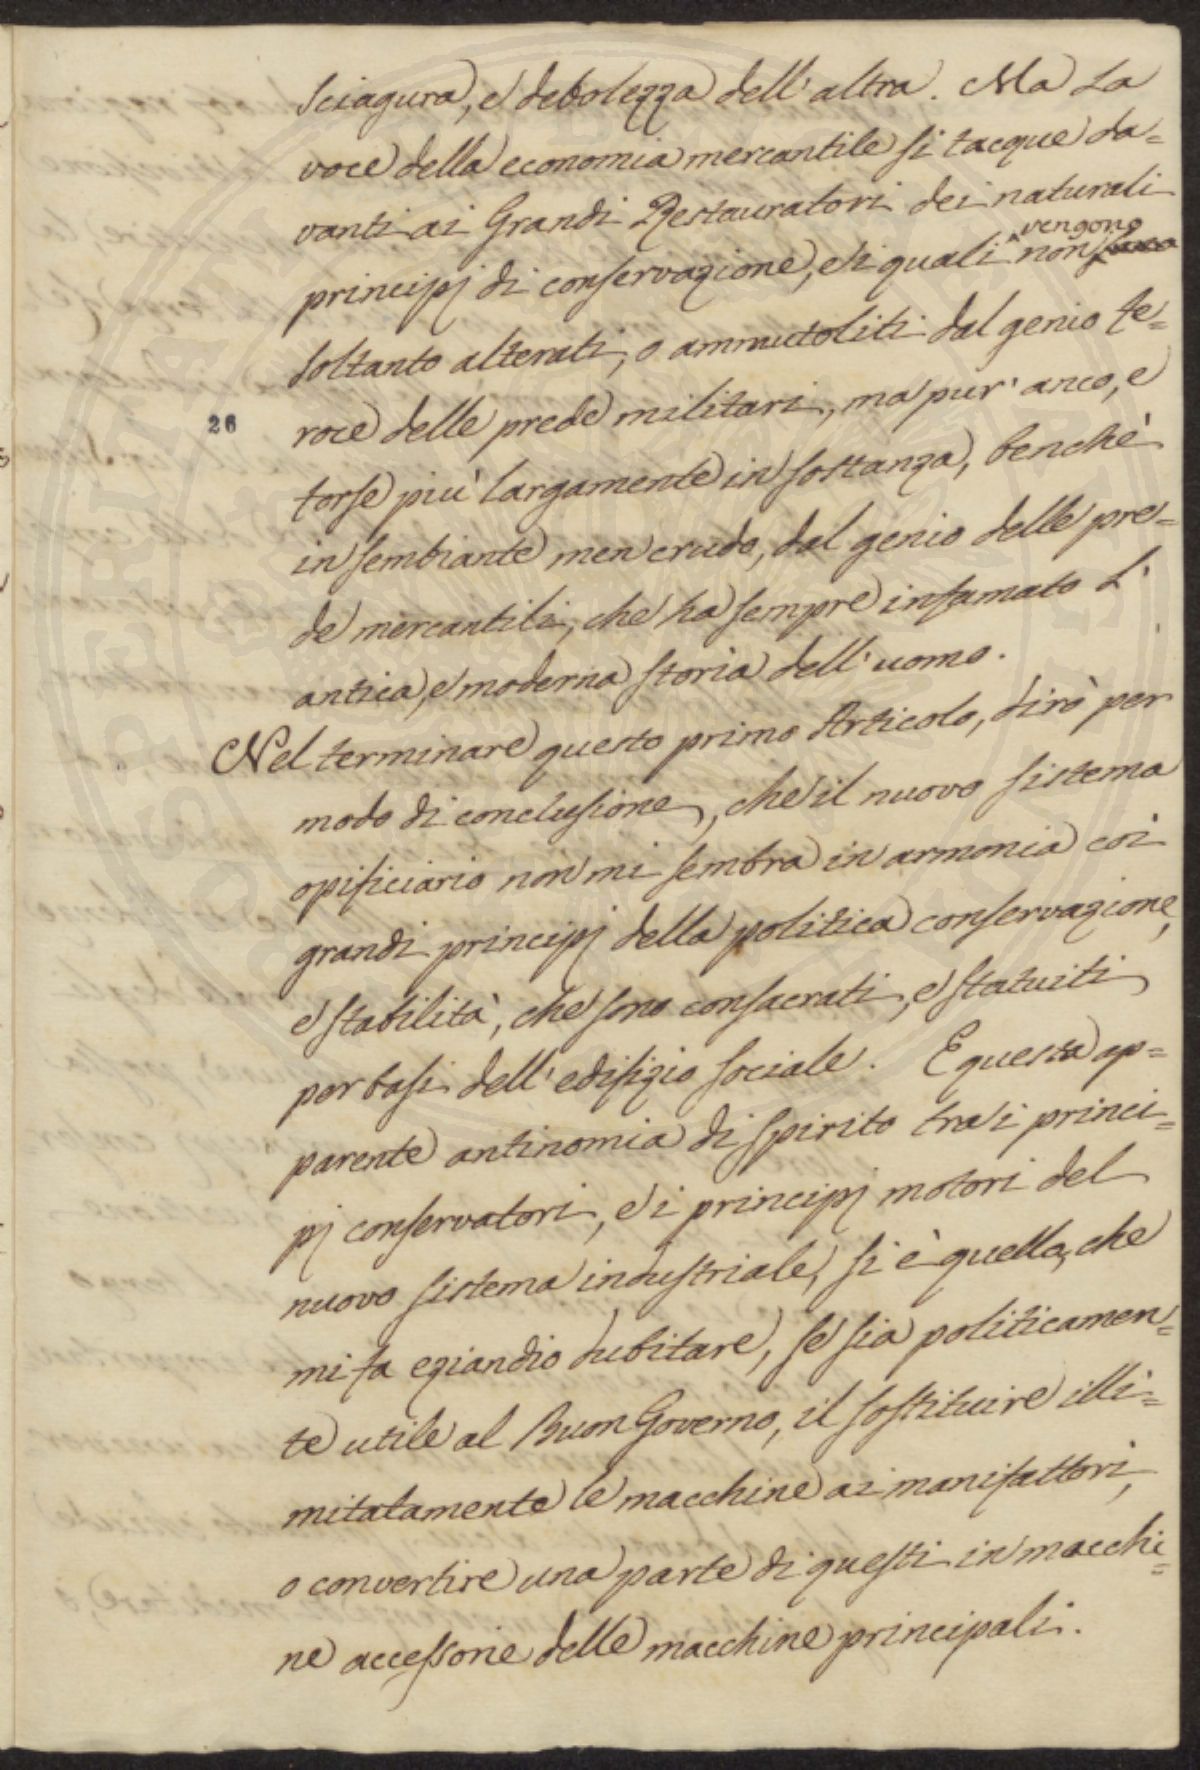 sciagura, e debolezza dell'altra. Ma la
voce della economia mercantile si tacque da=
vanti ai Grandi Restauratori dei naturali
vengono
principj di conservazione, ei quali non
soltanto alterati, o ammutoliti dal genio fe=
roce delle prede militari, ma pur'anco, e
26
forse più largamente in sostanza, benchè
in sembiante men crudo, dal genio delle pre=
de mercantili, che ha sempre infamato l'
antica, e moderna storia dell'uomo.
Nel terminare questo primo Articolo, dirò per
modo di conclusione, che il nuovo sistema
opificiario non mi sembra in armonia coi
grandi principj della politica conservazione,
e stabilità, che sono consacrati, e statuiti
per basi dell'edifizio sociale. E questa ap=
parente antinomia di spirito tra i princi=
pj conservatori, e i principj motori del
nuovo sistema industriale, si è quella, che
mi fa eziandio dubitare, se sia politicamen=
te utile al Buon Governo, il sostituire illi=
mitatamente le macchine ai manifattori,
o convertire una parte di questi in macchi=
ne accessorie delle macchine principali.